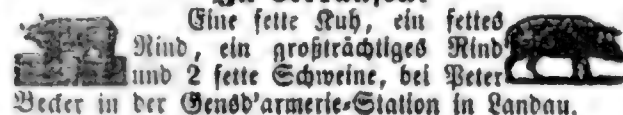 Eine fette Kuh, ein fettes
Rind, ein großträchtiges Rind
und 2 fette Schweine, bei Peter
Becker in der Gensd'armerie-Station in Landau.